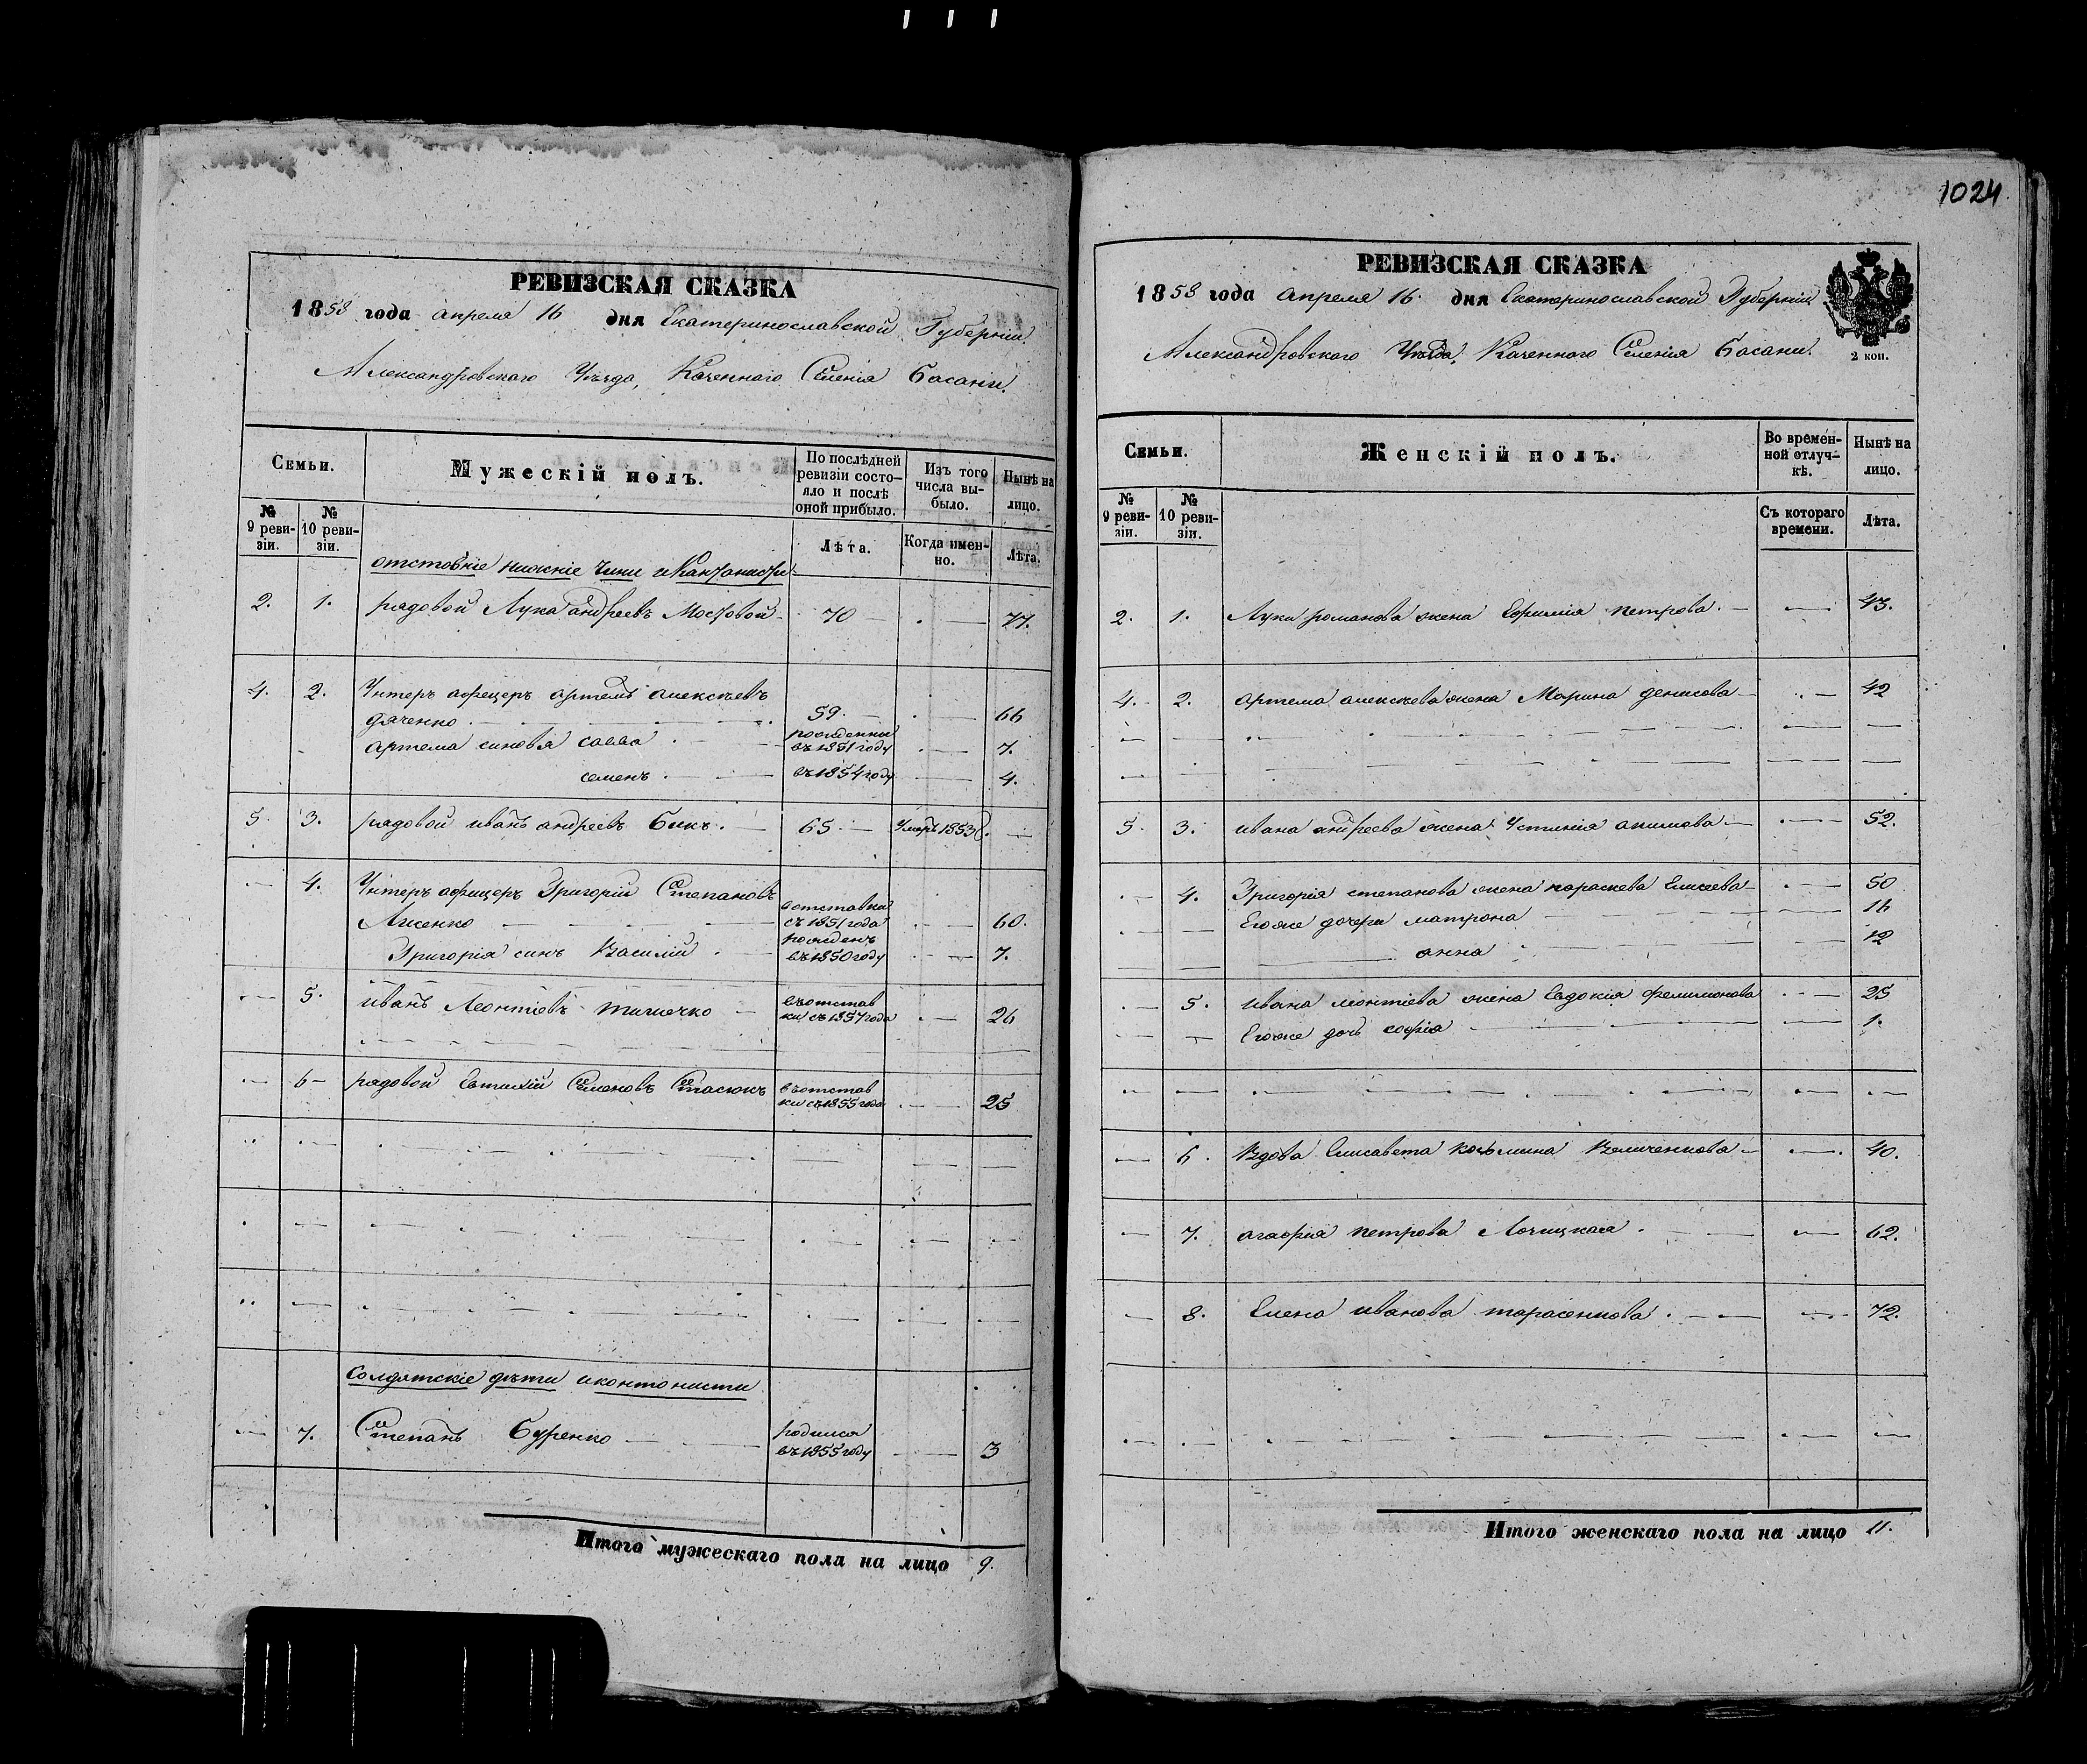 1024
РЕВИЗСКАЯ СКАЗКА
1858 года апреля 16 дня Екатеринославской Губерніи
Александровскаго Уѣзда, Казеннаго Селенія Басани.
Семьи.
Мужескій полъ.
По послѣдней ревизіи состо-
яло и послѣ
оной прибыло.
Изъ того
числа вы-
было.
Нынѣ на
лицо.
№
9 реви-
зіи.
№
10 реви-
зіи.
Лѣта.
Когда имен-
но.
Лѣта.
отстовніе нижніе чини и Кантонисти
2. 1. рядовой Лука андреевъ Мостовой 70 77.
4. 2. Унтеръ афецеръ артемъ алексѣевъ
дяченко 59. 66
рожденны
артема синовя савва въ 1851 году 7.
семенъ въ 1854 году 4.
5 3. рядовой иванъ андреевъ Бикъ. 65 Умеръ 1853
4. Унтеръ афицеръ Григорій Степановъ
вотставки
Лисенко съ 1851 года 60.
рожденъ
Григорія синъ Василій въ 1850 году 7.
5. иванъ Леонтіевъ тимечко въ отстав
ки съ 1857 года 26
6 рядовой Евтихій Семеновъ Стасюкъ въ отстав
ки съ 1855 года 25
солдатскіе дѣти и контонисти
7. Степанъ Буренко родился
въ 1855 году 3
Итого мужескаго пола на лицо 9.
РЕВИЗСКАЯ СКАЗКА
1858 года апреля 16 дня Екатеринославской Губерніи
Александровского Уѣзда, Казенного Селенія Басани.
2 коп.
Семьи.
Женскій полъ.
Во времен-
ной отлуч-
кѣ.
Нынѣ на
лицо.
№
9 реви-
зіи.
№
10 реви-
зіи.
Съ котораго
времени.
Лѣта.
2. 1. Луки романова жена Ефимія петрова 43.
4. 2. артема алексѣева жена Марина денисова 42
5. 3. ивана андреева жена Устинія акимова 52.
4. Григорія степанова жена параскева Елисеева 50
Егоже дочери матрона 16
анна 12
5. ивана леонтіева жена Евдокія филимонова 25
Егоже дочь софія 1.
6. Вдова Елисавета козьмина Величенкова 40.
7. агафія петрова Лочицкая 62.
8. Елена иванова тарасенкова 72.
Итого женскаго пола на лицо 11.